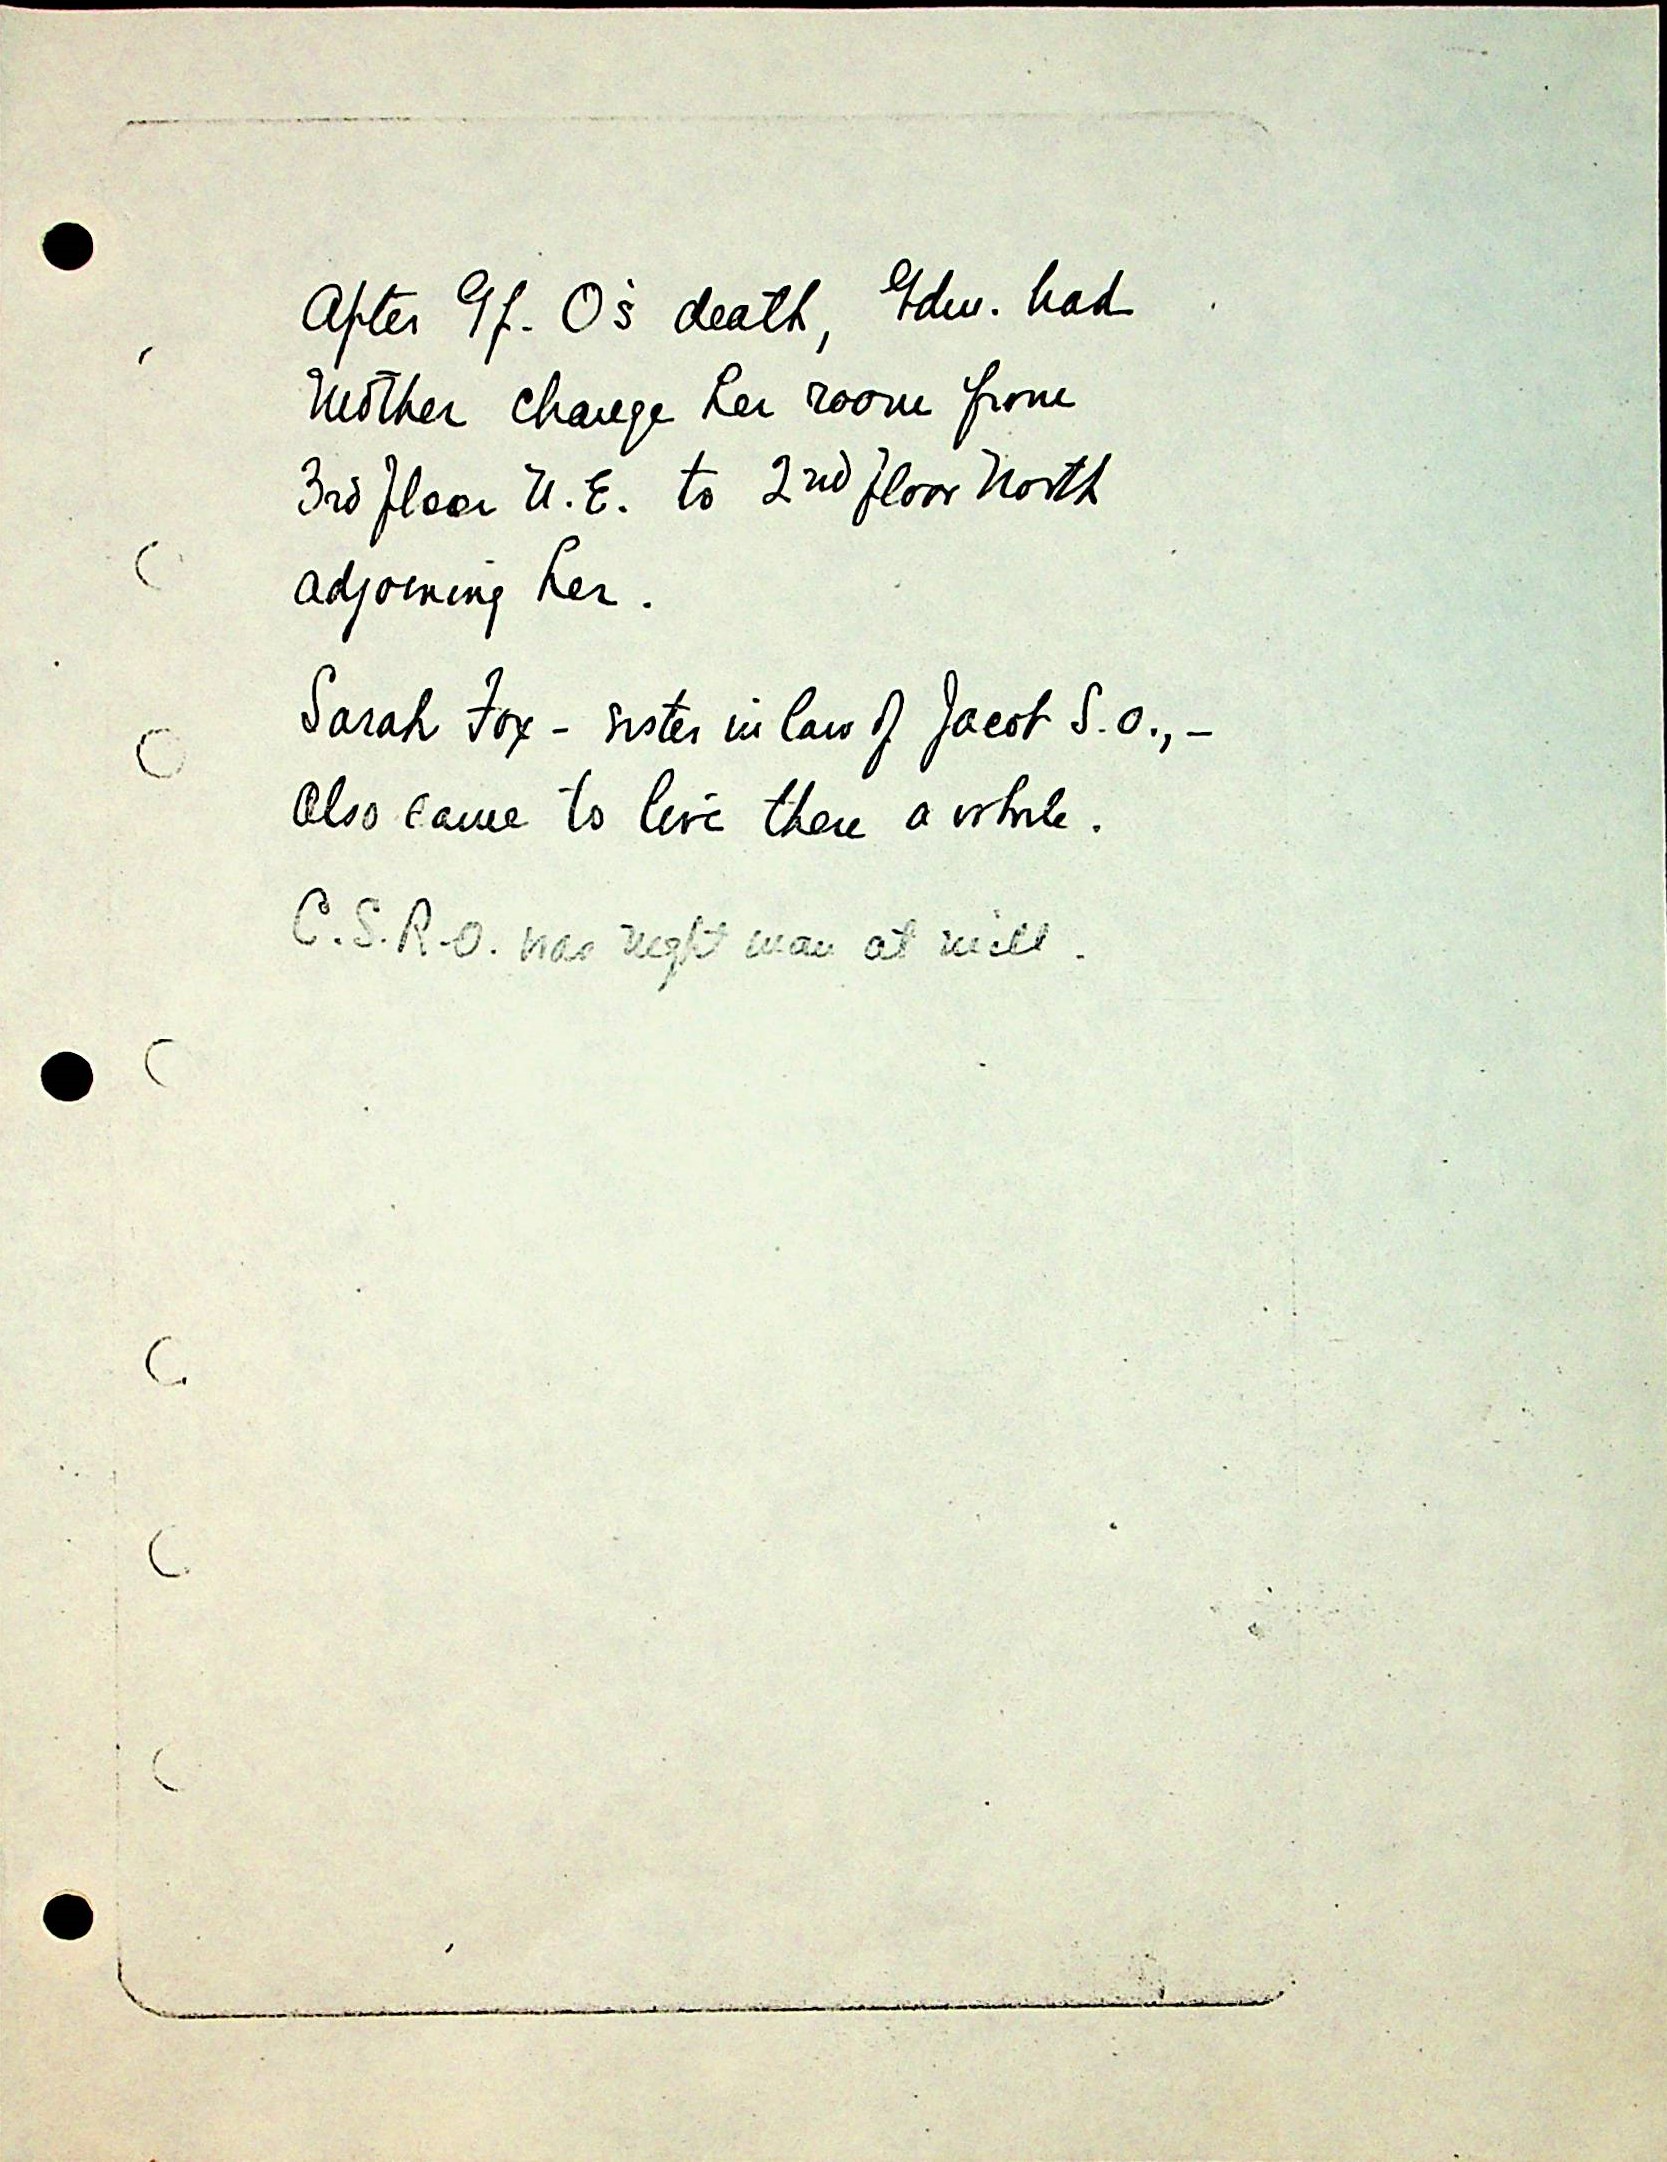 After Gf. O's death, Gdm. had
Mother change her room from
3rd floor N.E. to 2nd floor North
adjoining her.
Sarah Fox - sister in law of Jacob S. O., -
Also came to live there a while.
C.S.R.O. was night man at mill.